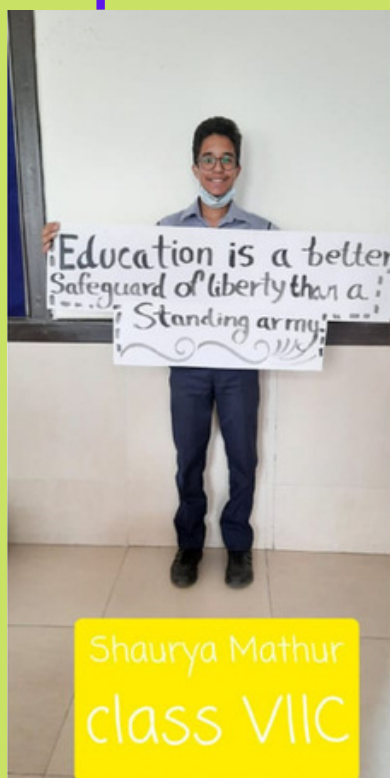 Education is a better
Safeguard of liberty than a
Standing army.
Shaurya Mathur
class VIIC